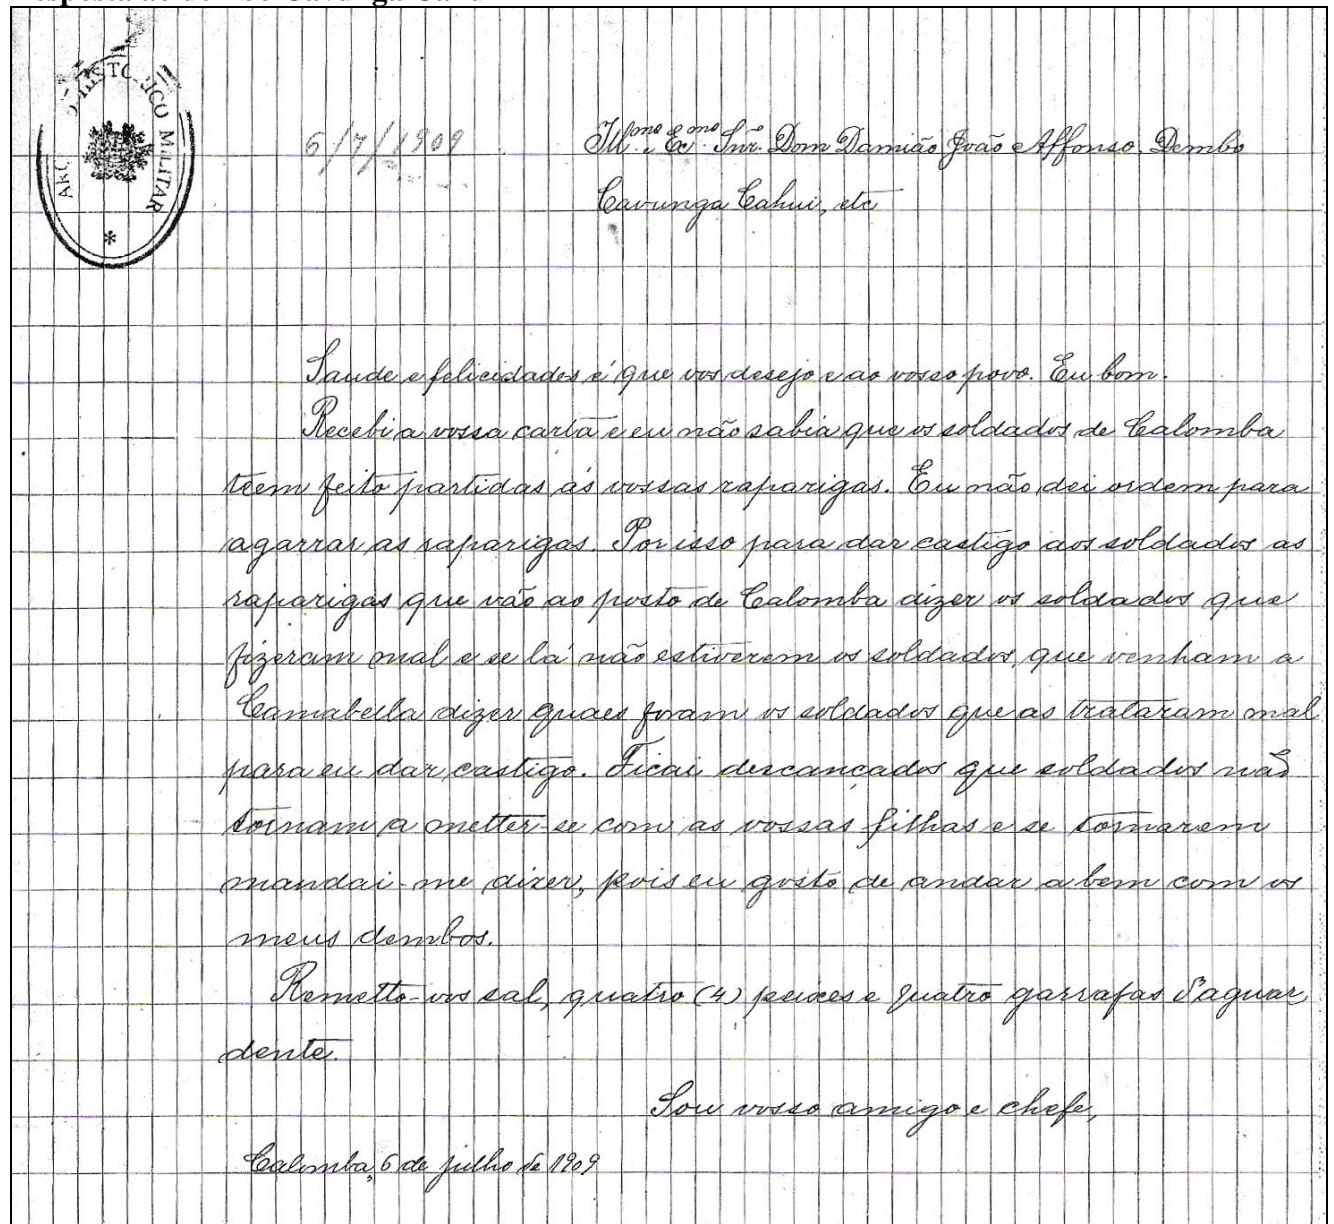 ARQ HISTORICO MILITAR
*
6/7/1909
Ill.mo e Ex.mo Snr. Dom Damião João Affonso, Dembo
Cavunga Cahui, etc
Saude e felicidades é que vos desejo e ao vosso povo. Eu bom.
Recebi a vossa carta e eu não sabia que os soldados de Calomba
teem feito partidas ás vossas raparigas. Eu não dei ordem para
agarrar as raparigas. Por isso para dar castigo aos soldados as
raparigas que vão ao posto de Calomba dizer os soldados que
fizeram mal e se lá não estiverem os soldados, que venham a
Camabella dizer quaes foram os soldados que as trataram mal
para eu dar castigo. Ficai descançados que soldados não
tornam a metter-se com as vossas filhas e se tornarem
mandai-me dizer, pois eu gosto de andar a bem com os
meus dembos.
Remetto-vos sal, quatro (4) peixes e quatro garrafas d'aguar
dente.
Sou vosso amigo e chefe,
Calomba, 6 de julho de 1909